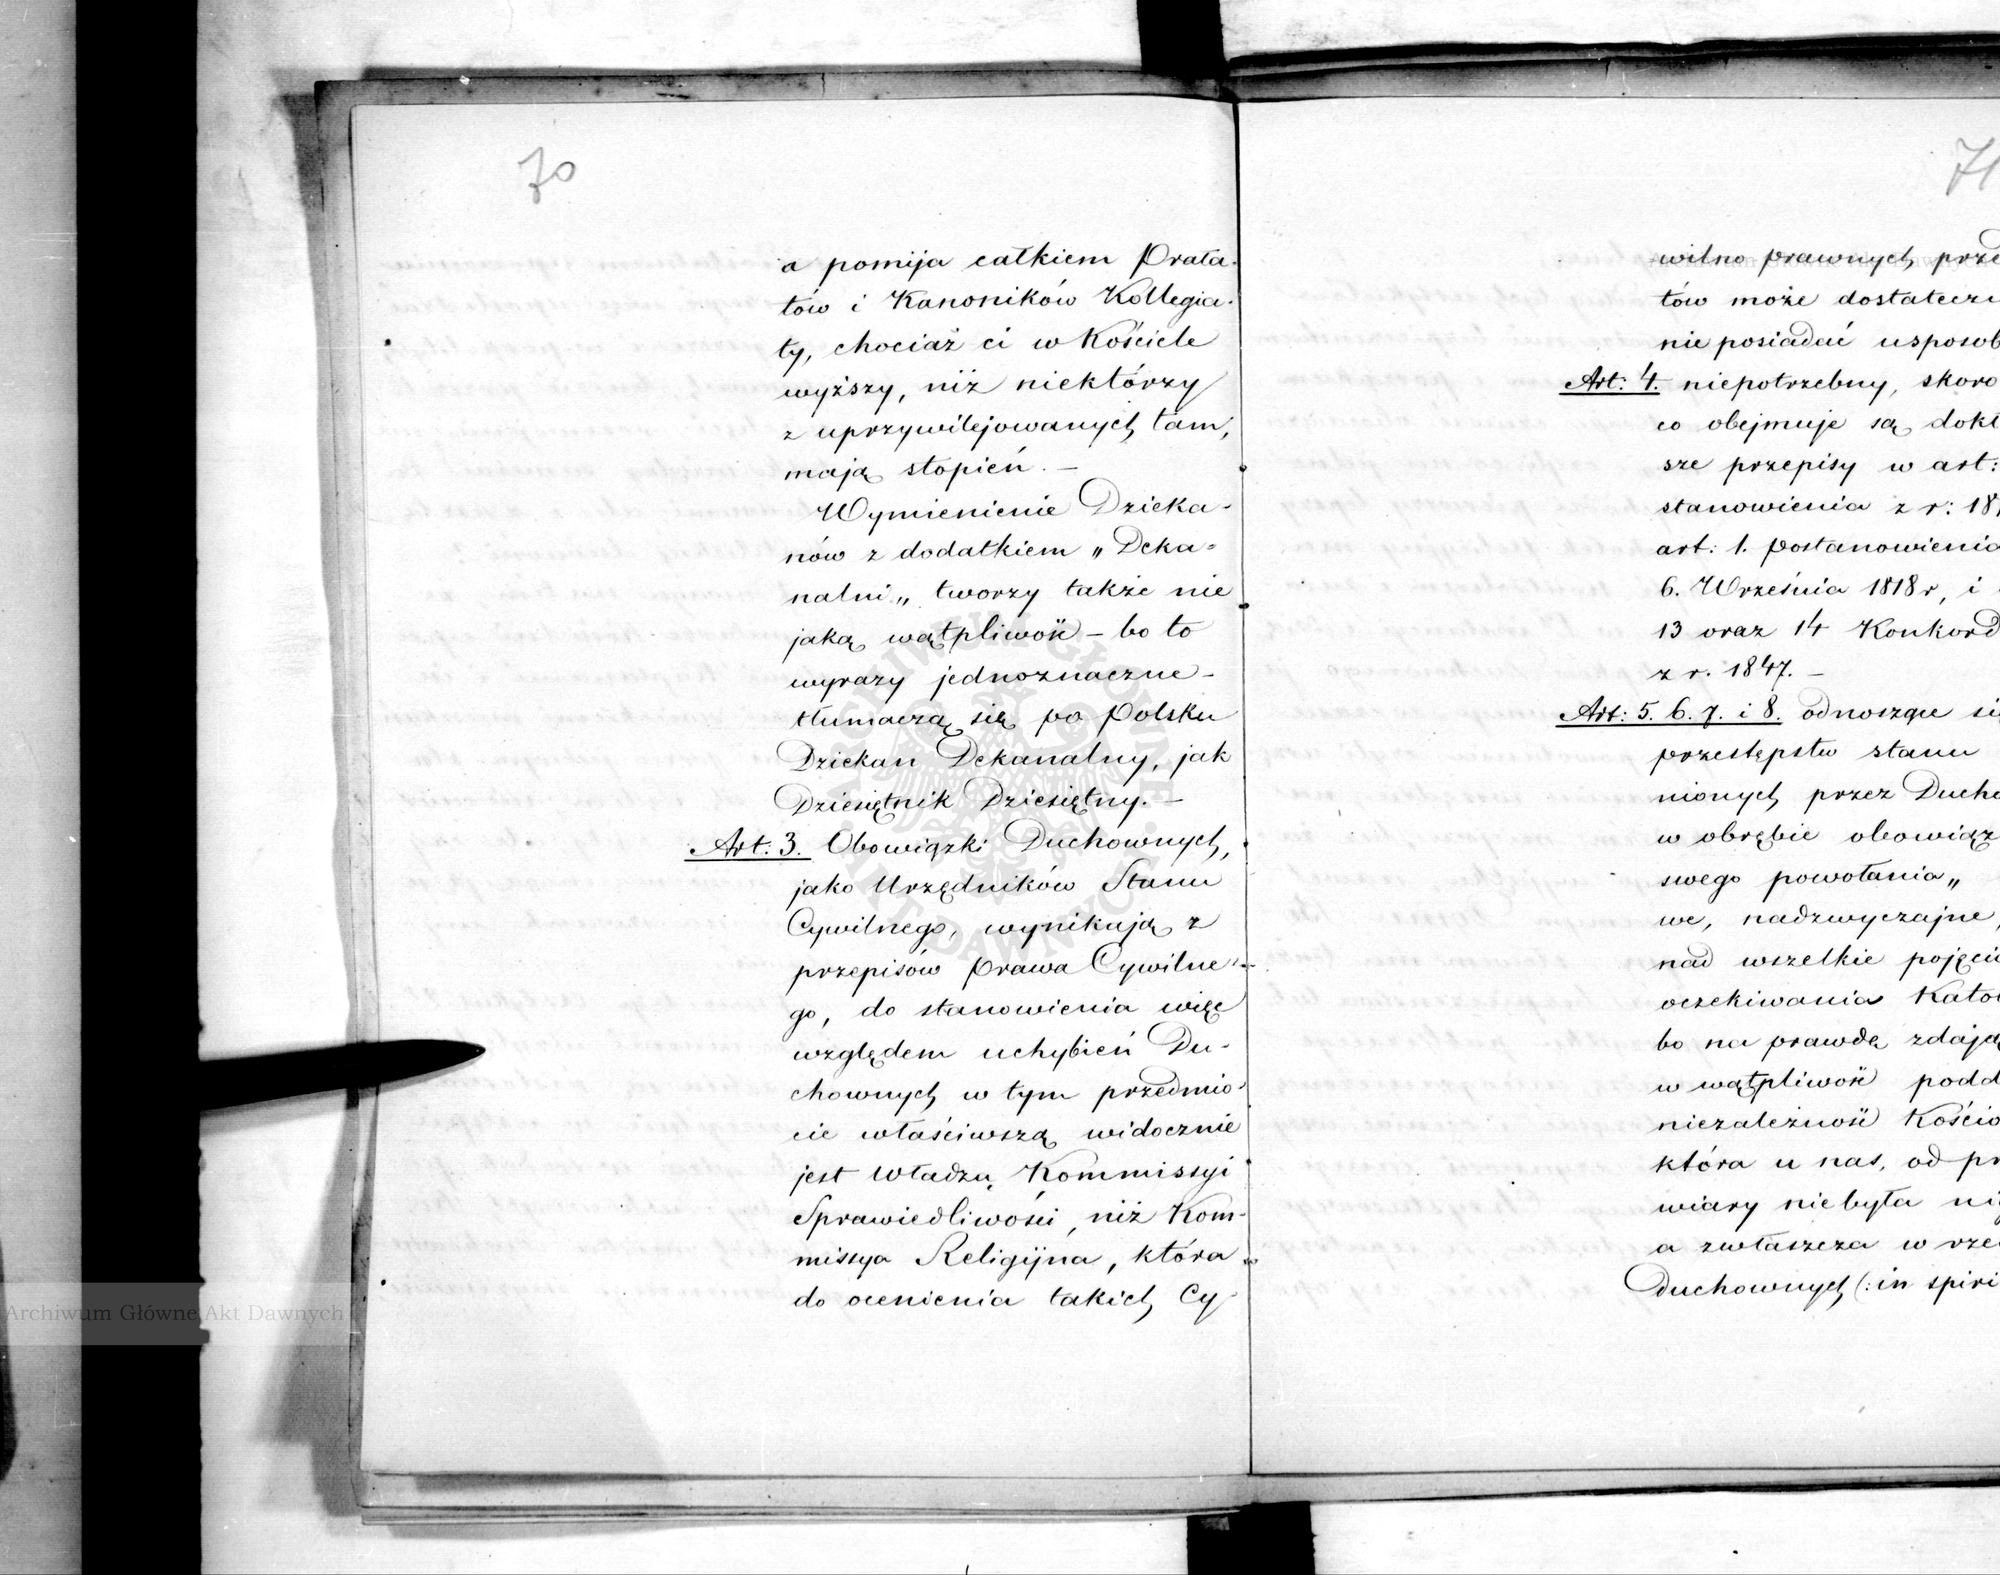 70
a pomija całkiem Prała-
tów i Kanoników Kollegia-
ty, chociaż ci w Kościele
wyższy, niż niektórzy
z uprzywilejowanych tam,
mają stopień. —
Wymienienie Dzieka-
nów z dodatkiem „Deka-
nalni„ tworzy także nie
jaką wątpliwość – bo to
wyrazy jednoznaczne –
tłumaczą się po Polsku
Dziekan Dekanalny, jak
Dziesiętnik Dziesiętny. —
Art: 3. Obowiązki Duchownych,
jako Urzędników Stanu
Cywilnego, wynikają z
przepisów prawa Cywilne-
go, do stanowienia więc
względem uchybień Du-
chownych w tym przedmio-
cie właściwszą widocznie
jest Władzą Kommissyi
Sprawiedliwości, niż Kom-
missya Religijna, która
do ocenienia takich Cy-
71
wilno prawnych prze
tów może dostatecz
nie posiadać usposob
Art: 4. niepotrzebny, skoro
co obejmuje są dokł
sze przepisy w art:
stanowienia z r: 181
art: 1. postanowienia
6. Września 1818 r, i
13 oraz 14 Konkord
z r. 1847. —
Art: 5. 6. 7. i 8. odnoszące si
przestępstw stanu
nionych przez Ducho
w obrębie obowiąz
swego powołania„
we, nadzwyczajne,
nad wszelkie pojęci
oczekiwania Kato
bo na prawdę zdają
w wątpliwość podd
niezależność Kościo
która u nas, od pr
wiary nie była ni
a zwłaszcza w rze
Duchownych (: in spiri
Archiwum Główne Akt Dawnych